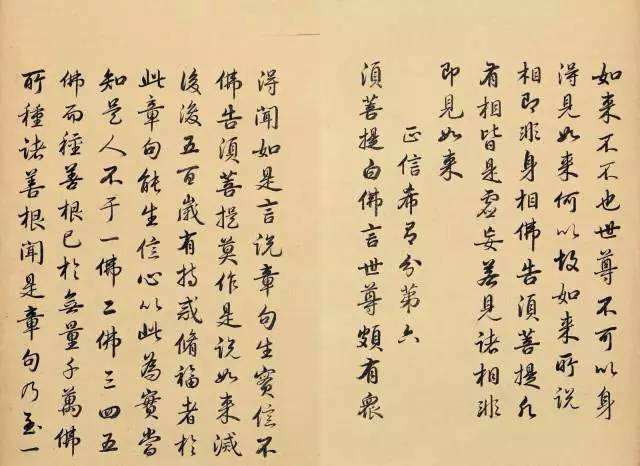 如来不不也世尊不可以身
得見如来何以故如来所説
相即非身相佛告須菩提凡
有相皆是虚妄若見諸相非
即見如来
正信希有分第六
須菩提白佛言世尊頗有衆
得聞如是言説章句生實信不
佛告須菩提莫作是説如来滅
後後五百歲有持戒脩福者於
此章句能生信心以此為實當
知是人不于一佛二佛三四五
佛而種善根已於無量千萬佛
所種諸善根聞是章句乃至一